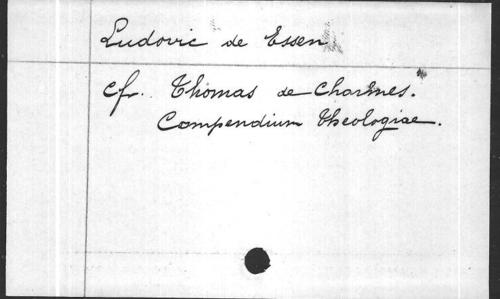 Ludovic de Essen
cfr. Thomas de Charmes.
Compendium Theologiae.